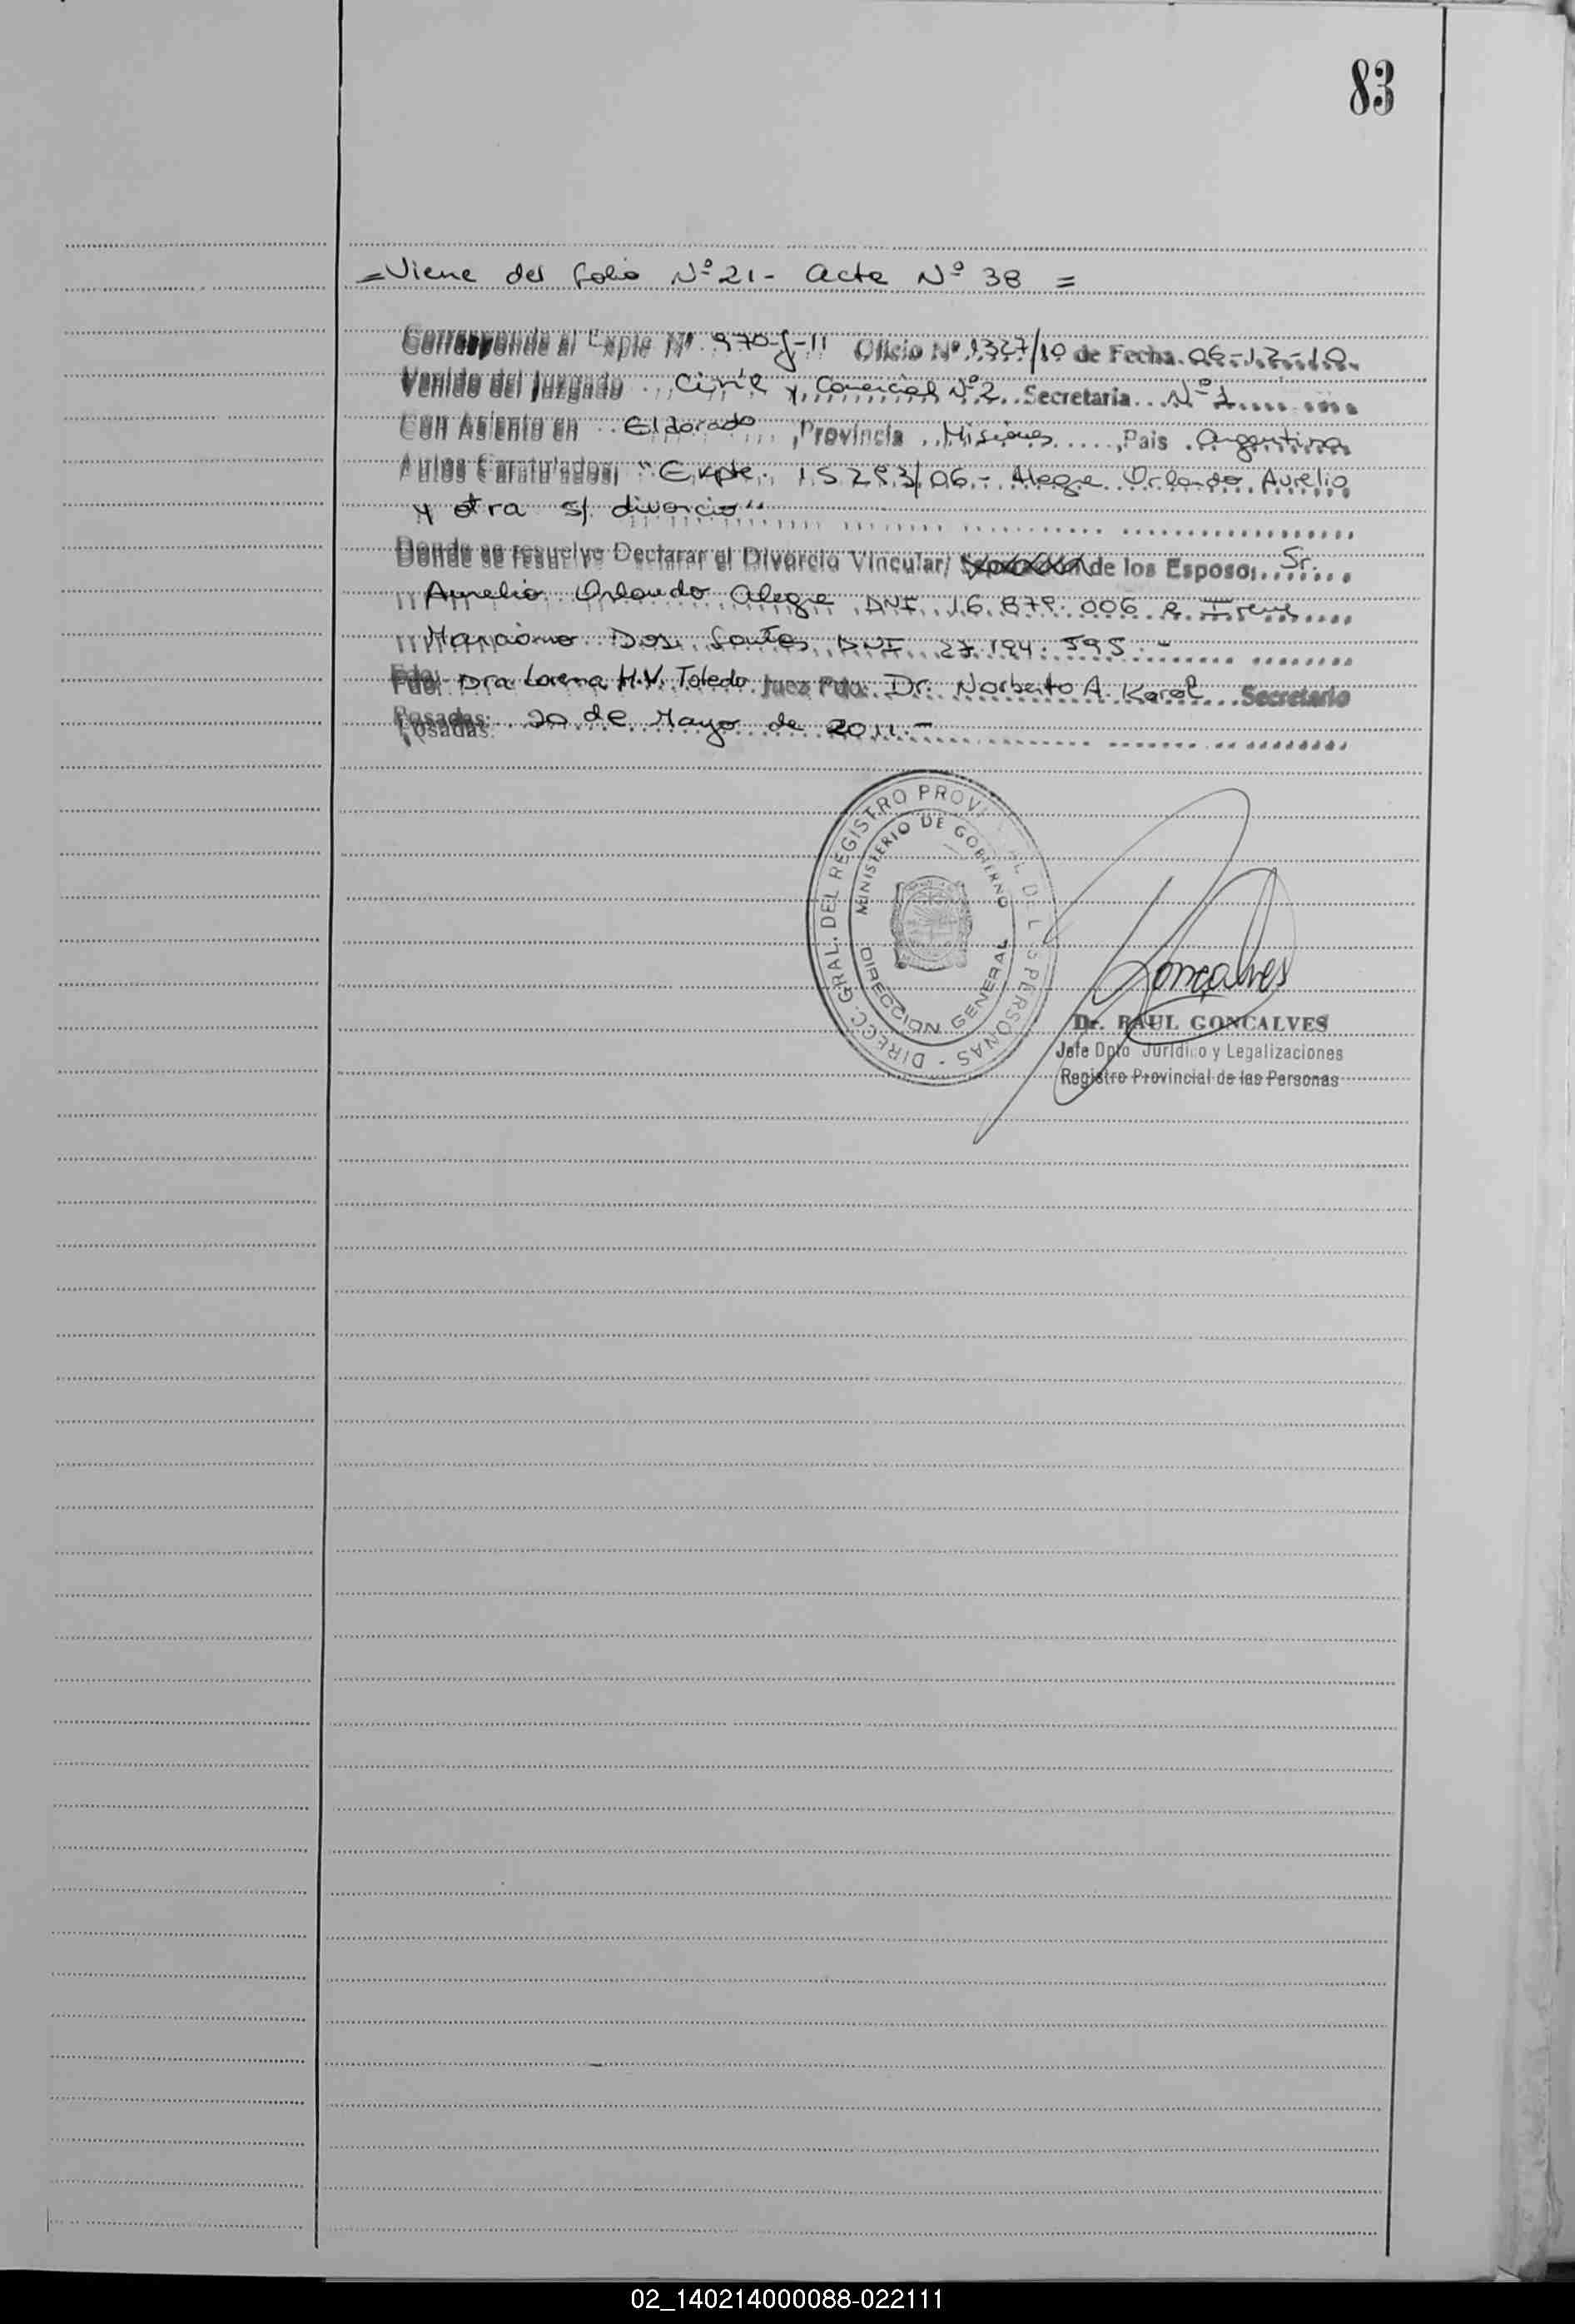 83
=Viene del folio Nº 21- Acta Nº 38 =
Corresponde al Expte Nº 970-J-11 Oficio Nº 1327/10 de Fecha 06-12-10
Venido del Juzgado Civil y Comercial Nº 2 Secretaria Nº 1
Con Asiento en Eldorado, Provincia Misiones, Pais Argentina
Autos Caratulados; "Expte. 15293/06.- Alegre Orlando Aurelio
y otra s/ divorcio"
Donde se resuelve Declarar el Divorcio Vincular/ Separación de los Esposo; Sr.
Aurelio Orlando Alegre DNI. 16.879.006 e Irene
Dos Santos DNI 27.194.595.-
Fdo: Dra Lorena H.V. Toledo Juez Fdo: Dr. Norberto A. Karol Secretario
Posadas: 20 de Mayo de 2011.-
DIRECC. GRAL. DEL REGISTRO PROVINCIAL DE LAS PERSONAS -
MINISTERIO DE GOBIERNO
DIRECCION GENERAL
Gonçalves
Dr. RAUL GONCALVES
Jefe Dpto Jurídico y Legalizaciones
Registro Provincial de las Personas
02_140214000088-022111